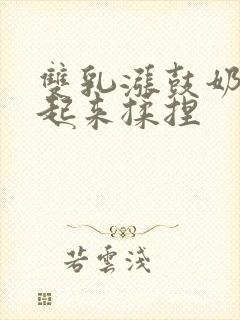 雙乳漲鼓奶
起来揉捏
若雲淺